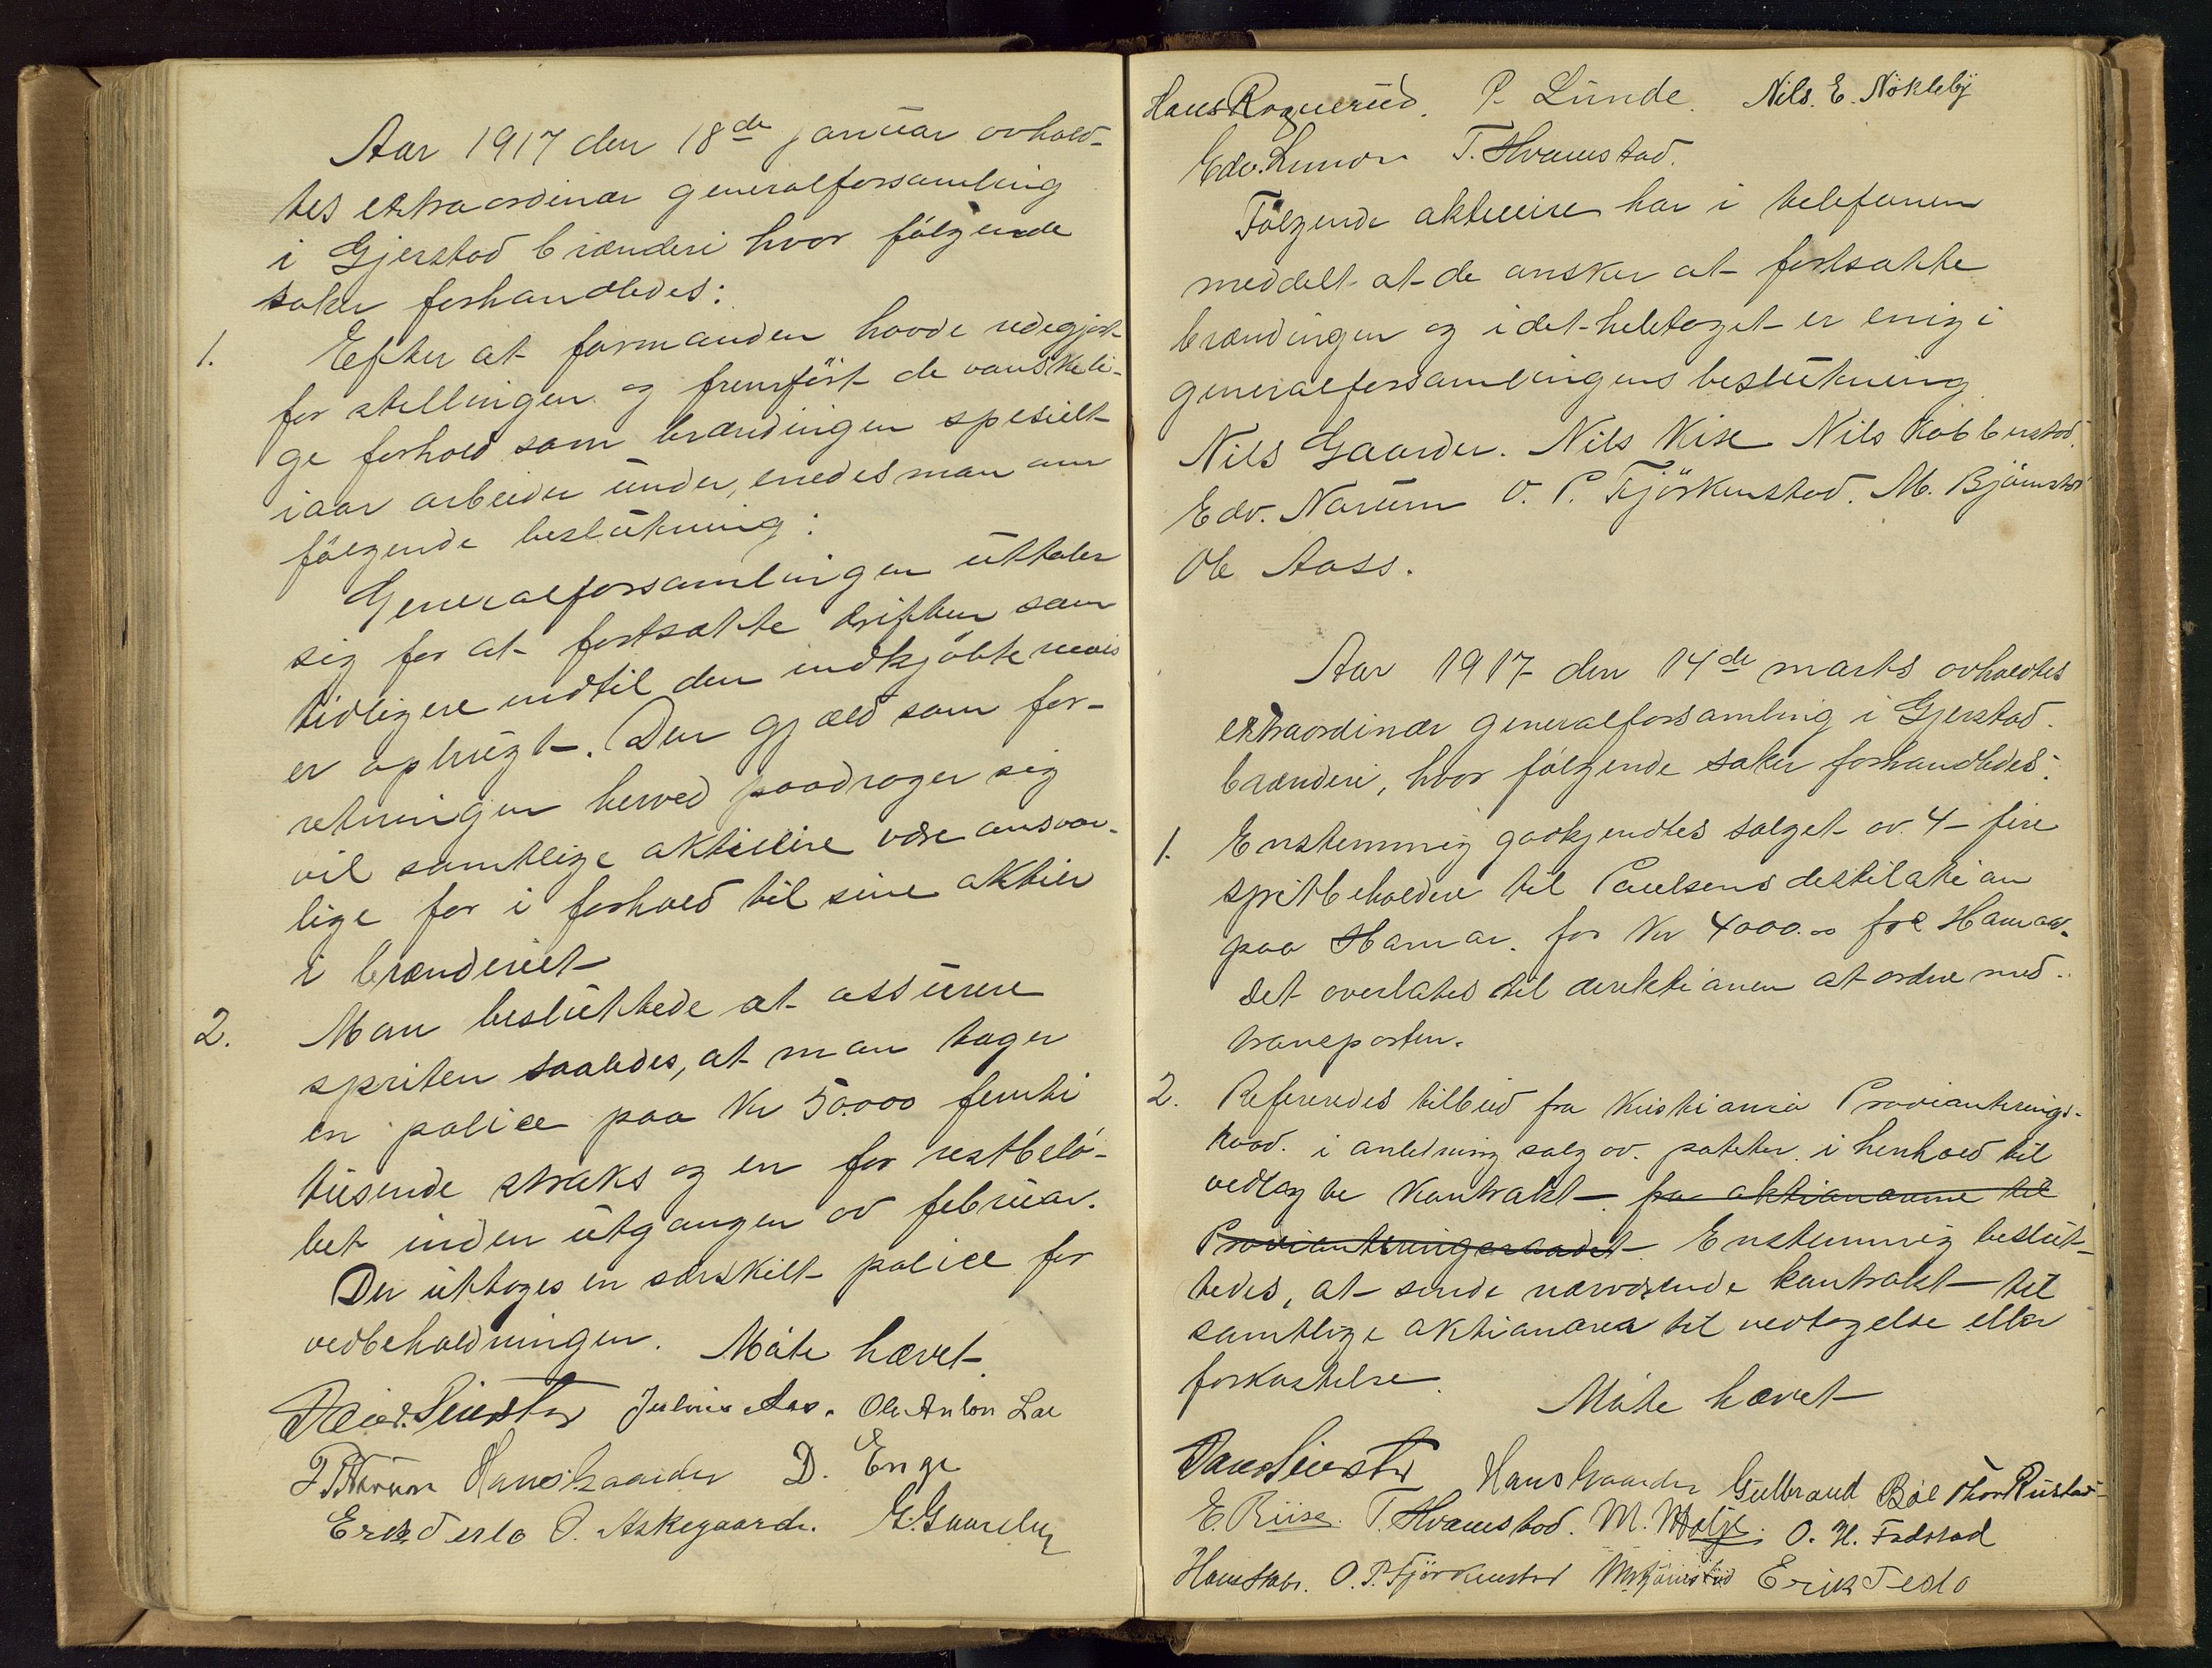 Aar 1917 den 18de januar avhold-
tes extraordinær generalforsamling
i Gjerstad brænderi hvor følgende
saker forhandledes:
1. Efter at formanden havde redegjort
for stillingen og fremført de vanskeli-
ge forhold som brændingen spesielt
iaar arbeider under, enedes man om
følgende beslutning:
Generalforsamlingen uttaler
sig for at fortsætte driften som
tidligere indtil den indkjøbte mais
er opbrugt. Den gjæld som for-
retningen herved paadrager sig
vil samtlige aktieeire være ansvar-
lige for i forhold til sine aktier
i brænderiet
2. Man besluttede at assurere
spriten saaledes, at man tager
en police paa Kr 50.000 femti
tusende straks og en for restbelø-
bet inden utgangen av februar.
Der uttoges en særskilt police for
vedbeholdningen. Møte hævet
Julius Aas. Ole Anton Lae
Hans Gaarder D. Enge
Erik Teslo O. Askegaard. G. Gaarder
Hans Rognerud. P. Lunde. Nils. E. Nøkleby
Edv. T. Hvamstad.
Følgende aktieeire har i telefonen
meddelt at de ønsker at fortsætte
brændingen og i det hele taget er enig i
generalforsamlingens beslutning
Nils Gaarder. Nils Kise Nils Kobberstad.
Edv. Narum O. P. Fjørkenstad. M. Bjørnstad
Ole Aass.
Aar 1917 den 14de marts avholdtes
extraordinær generalforsamling i Gjerstad
brænderi, hvor følgende saker forhandledes:
1. Enstemmig godkjendtes salget av 4 - fire
spritbeholdere til Paulsens destilation
paa Hamar. for Kr 4000.00 fre Hamar.
Det overlates til direktionen at ordne med
transporten.
2. Refereredes tilbud fra Kristiania Provianterings-
raad. i anledning salg av poteter i henhold til
vedlagte kontrakt. fra aktionærerne til
Provianteringsraadet Enstemmig beslut-
tedes, at sende nærværende kontrakt til
samtlige aktionærer til vedtagelse eller
forkastelse.
Møte hævet
Hans Gaarder Gulbrand Bøe Thor Rustad
E. Riise. T. Hvamstad. M. O. H. Fodstad
O. P. Fjørkenstad M. Bjørnstad Erik Teslo